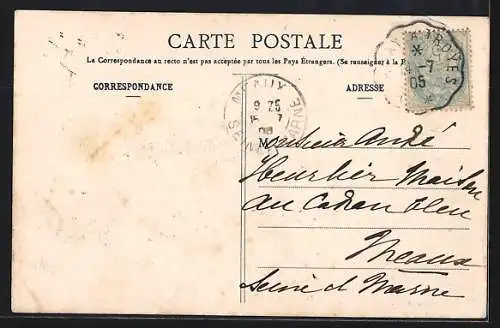 CARTE POSTALE
La Correspondance au recto n'est pas acceptée par tous les Pays Étrangers. (Se renseigner à la P
CORRESPONDANCE
ADRESSE
TROYES
7
05
MEAUX
MARNE
Monsieur André
Heurlier Maison
au Cadran bleu
Meaux
Seine et Marne